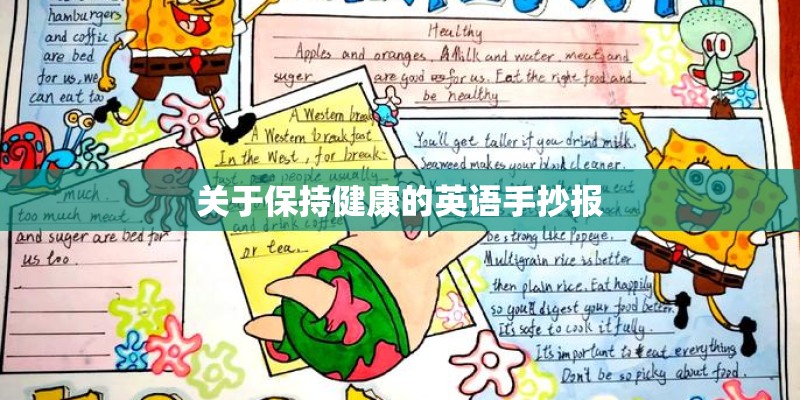 hamburgers
and coffic
are bed
for us, we
can eat to
much
too much meat
and suger are bed for
us too.
Healthy
Apples and oranges, Milk and water, meat and
suger are good for us. Eat the right food and
be healthy
A Western break
A Western breakfast
In the West, for break-
fast, people usually
and drink coffee
or tea.
关于保持健康的英语手抄报
You'll get taller if you drind milk.
Seaweed makes your blook cleaner.
eat
be strong like Popeye.
Multigrain rice is better
then plain rice. Eat happily
so you'll digest your food better.
It's safe to cook it fully.
It's important to eat everything
Don't be so picky about food.